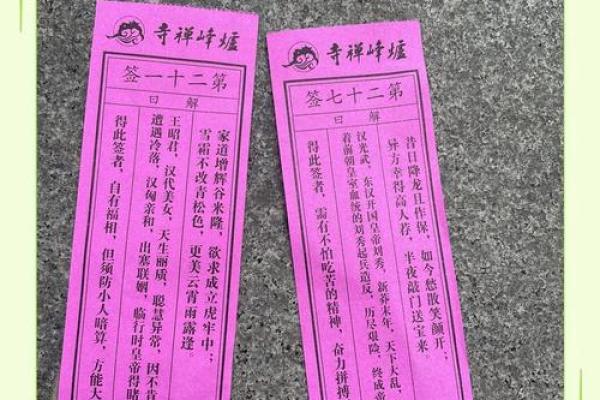 爐峰禪寺
第二十一签
解曰
家道增辉谷米隆，欲求成立虎牢中；
雪霜不改青松色，更美云霄雨露逢。
王昭君，汉代美女，天生丽质，聪慧异常，因不肯
遭遇冷落，汉匈亲和，出塞联姻，临行时皇帝得睹
得此签者，自有福相，但须防小人暗算，方能大
爐峰禪寺
第二十七签
解曰
昔日降龙且作保，如今愁散笑颜开；
异方幸得高人荐，半夜敲门送宝来
汉光武，东汉开国皇帝刘秀，新莽末年，天下大乱，
着前朝皇室血统的刘秀起兵造反，历尽艰险，终成帝
得此签者，需有不怕吃苦的精神，奋力拼搏